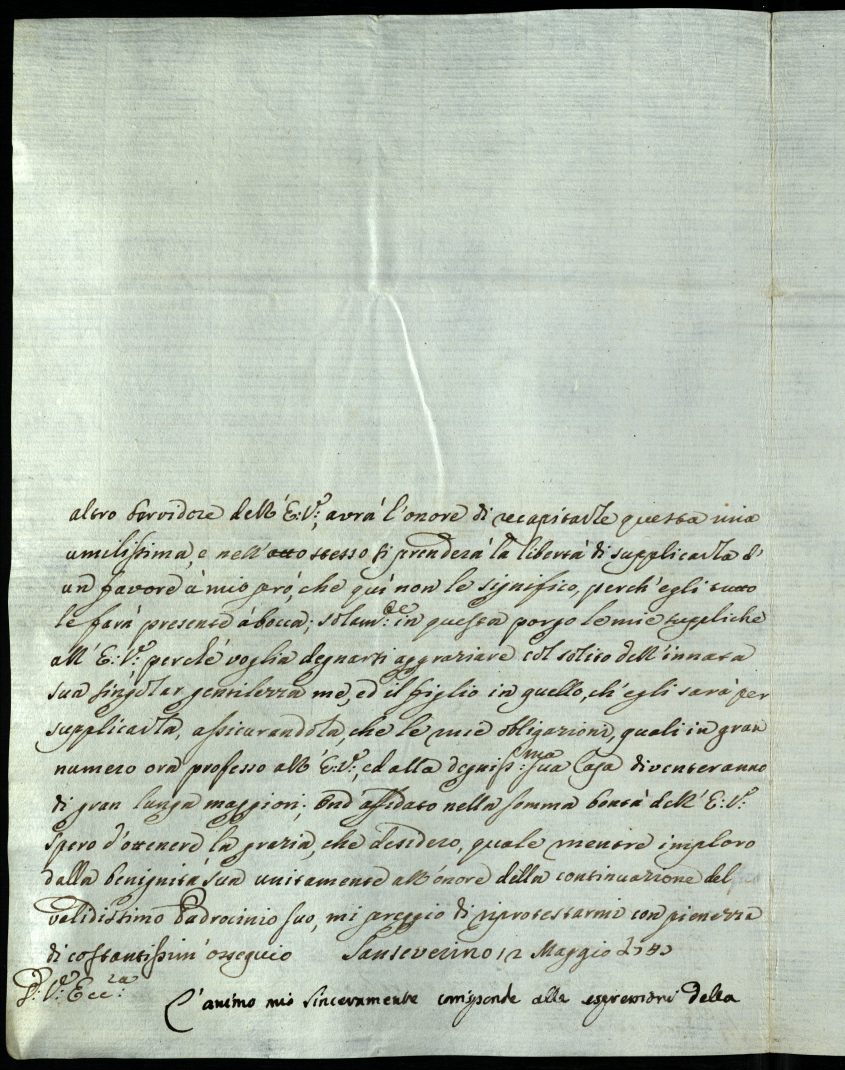 altro Servidore dell' E: V:, avrà l'onore di recapitarle questa mia
umilissima, e nell' atto stesso si prenderà la libertà di supplicarla d'
un favore à mio prò, che qui non le significo, perch'egli tutto
le farà presente à bocca; solam:te in questa porgo le mie suppliche
all' E: V: perchè voglia degnarsi aggraziare col solito dell'innata
sua singolar gentilezza me, ed il figlio in quello, ch'egli sarà per
supplicarla, assicurandola, che le mie obligazioni, quali in gran
numero ora professo all' E: V:, ed alla degniss:ma sua Casa diventeranno
di gran lunga maggiori; Ond' affidato nella somma bontà dell' E: V:
spero d'ottenere la grazia, che desidero, quale mentre imploro
dalla benignità sua unitamente all' onore della continuazione del
validissimo Padrocinio suo, mi preggio di riprotestarmi con pienezza
di costantissim' ossequio Sanseverino 12 Maggio
D: V: Ecc:za
L'animo mio sinceramente corrisponde alle espressioni della